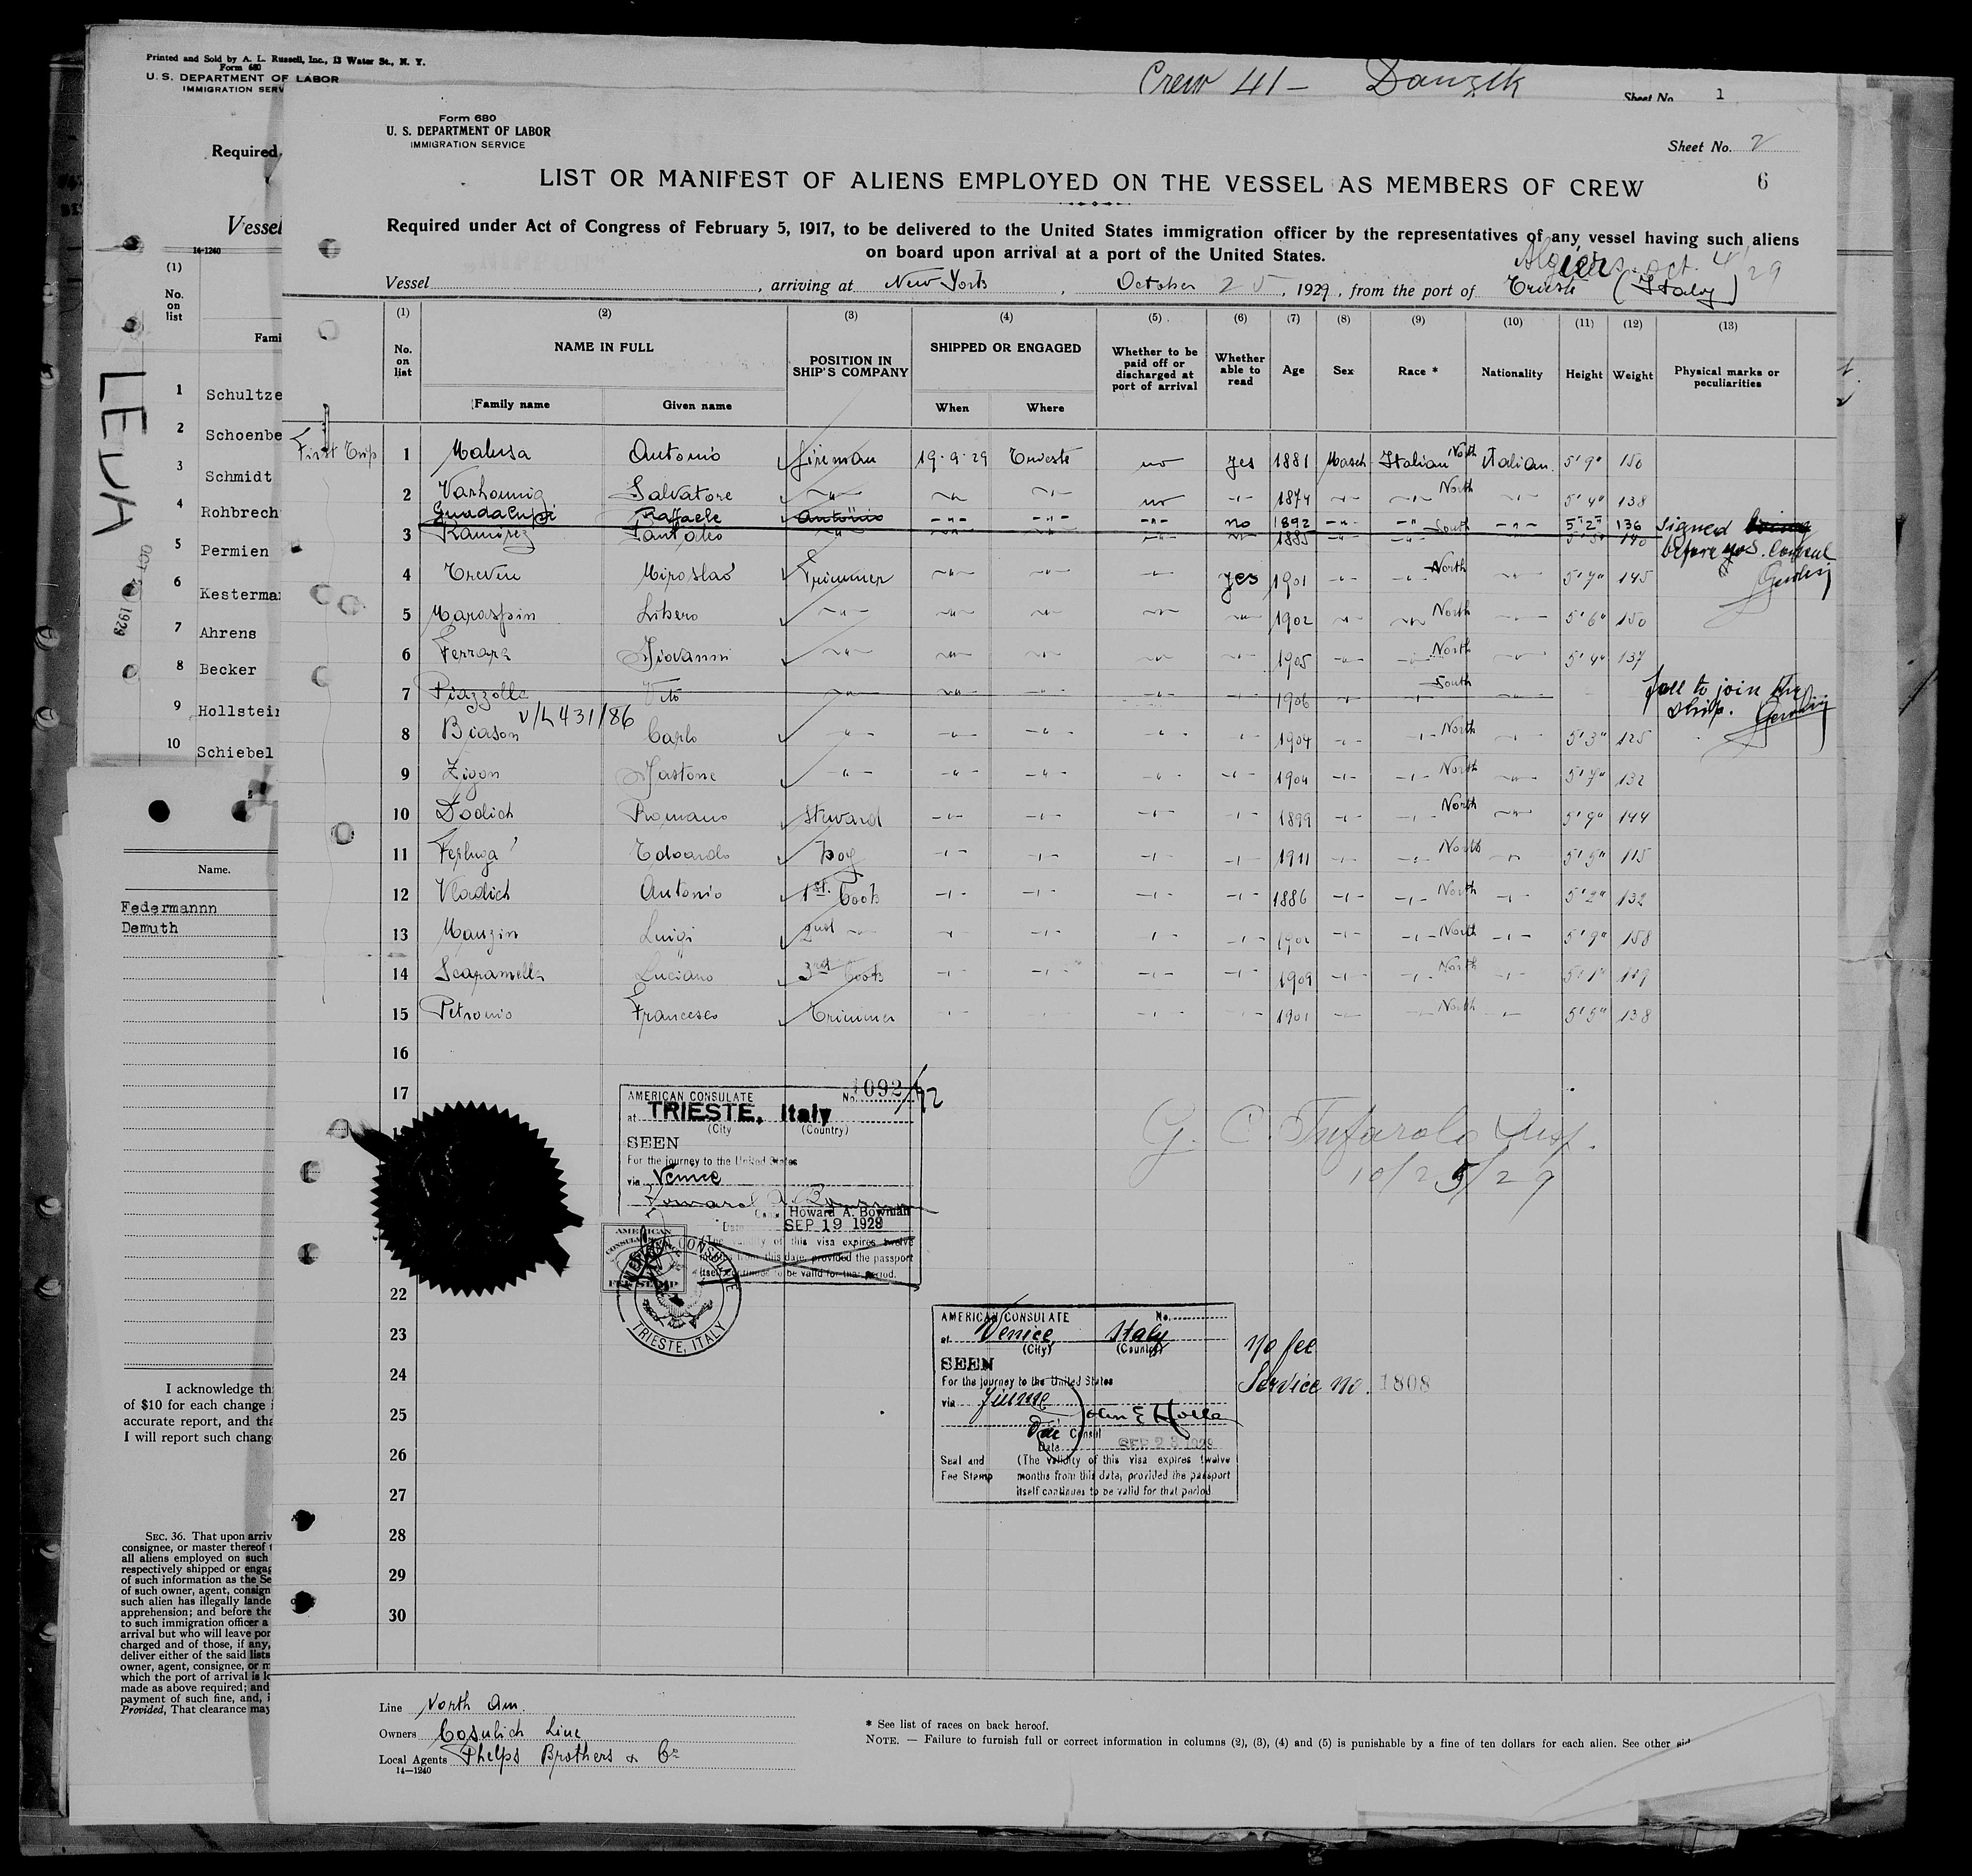 Printed and Sold by A. L. Russell, Inc., 13 Water St., N. Y.
Form 680
U. S. DEPARTMENT OF LABOR
IMMIGRATION SERV
Crew 41 - Danzik
Sheet No. 1
Required
Vessel
14-1240
(1)
No. on list
Fami
1 Schultze
2 Schoenbe
3 Schmidt
4 Rohbrech
5 Permien
6 Kesterma
7 Ahrens
8 Becker
9 Hollstei
10 Schiebel
Name.
Federmannn
Demuth
I acknowledge th
of $10 for each change i
accurate report, and tha
I will report such chang
SEC. 36. That upon arriv
consignee, or master thereof
all aliens employed on such
respectively shipped or engag
of such information as the Se
of such owner, agent, consign
such alien has illegally lande
apprehension; and before the
to such immigration officer a
arrival but who will leave por
charged and of those, if any,
deliver either of the said lists
owner, agent, consignee, or m
which the port of arrival is lo
made as above required; and
payment of such fine, and, i
Provided, That clearance may
Form 680
U. S. DEPARTMENT OF LABOR
IMMIGRATION SERVICE
Sheet No. 2
LIST OR MANIFEST OF ALIENS EMPLOYED ON THE VESSEL AS MEMBERS OF CREW
6
Required under Act of Congress of February 5, 1917, to be delivered to the United States immigration officer by the representatives of any vessel having such aliens
on board upon arrival at a port of the United States.
Algiers. oct. 4/29
Vessel , arriving at New York , October 25 , 1929 , from the port of Trieste (Italy)
(1) (2) (3) (4) (5) (6) (7) (8) (9) (10) (11) (12) (13)
No. on list NAME IN FULL POSITION IN SHIP'S COMPANY SHIPPED OR ENGAGED Whether to be paid off or discharged at port of arrival Whether able to read Age Sex Race * Nationality Height Weight Physical marks or peculiarities
Family name Given name When Where
First Trip 1 Malusa Antonio fireman 19.9.29 Trieste no yes 1881 Italian North Italian 5'9" 150
2 Salvatore no 1874 North 5'4" 138
Guadalupi Raffaele Antonio no 1892 South 5'2" 136 signed
3 Ramirez Pantaleo 1885 before
4 Miroslao Trimmer yes 1901 North 5'7" 145
5 Maraspin Libero 1902 North 5'6" 150
6 Ferrara Giovanni 1905 North 5'4" 137
7 Piazzolla Vito 1906 South fall to join the ship.
V/L 431/86
8 Biason Carlo 1904 North 5'3" 125
9 Zigon Gastone 1904 North 5'7" 132
10 Dodich Romano Steward 1899 North 5'9" 144
11 Ferluga Edoardo Boy 1911 North 5'5" 115
12 Vladich Antonio 1st. Cook 1886 North 5'2" 132
13 Manzin Luigi 2nd North 5'9" 158
14 Scaramella Luciano 3rd Cook 1909 North 5'1"
15 Petronio Francesco Trimmer 1901 North 5'5" 138
16
17
22
23
24
25
26
27
28
29
30
AMERICAN CONSULATE No. 1092/92
at TRIESTE, Italy
(City (Country)
SEEN
For the journey to the United States
via Venice
Howard A. Bowman
Date SEP 19 1929
(The validity of this visa expires twelve
months from this date, provided the passport
itself continues to be valid for that period.
AMERICAN CONSULAR FEE STAMP
AMERICAN CONSULATE
TRIESTE, ITALY
G. C. Tufarolo Insp.
10/25/29
AMERICAN CONSULATE No.
at Venice, Italy
(City) (Country)
SEEN
For the journey to the United States
via Fiume
Consul
Date SEP 23 1929
Seal and Fee Stamp
(The validity of this visa expires twelve
months from this date, provided the passport
itself continues to be valid for that period.
no fee
Service no. 1808
Line North Am.
Owners Cosulich Line
Local Agents Phelps Brothers & Co
14—1240
* See list of races on back hereof.
NOTE. — Failure to furnish full or correct information in columns (2), (3), (4) and (5) is punishable by a fine of ten dollars for each alien. See other sid